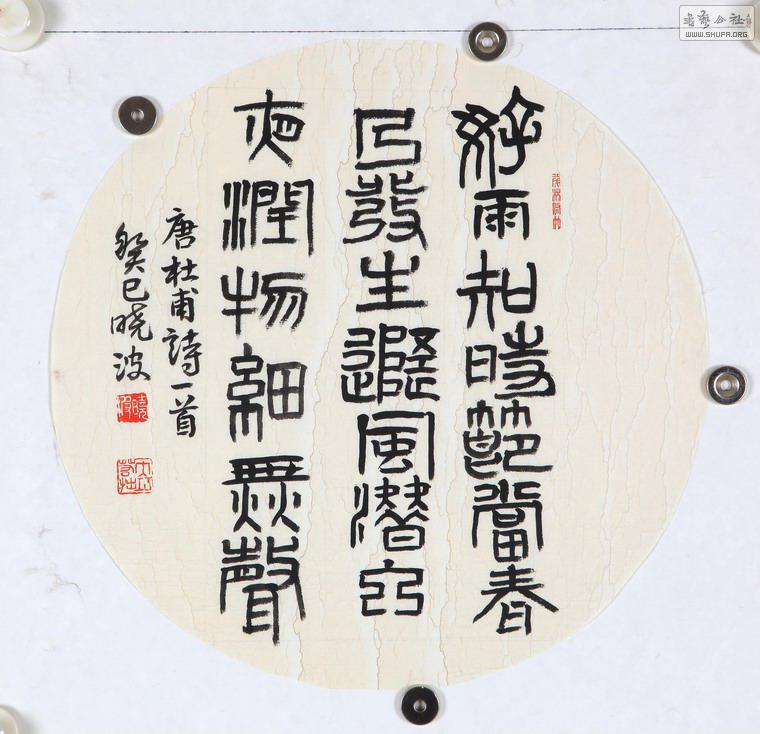 好雨知時節當春
乃發生隨風潛入
夜潤物細無聲
唐杜甫詩一首
癸巳曉波
曉波
大巧若拙
書藝公社
WWW.SHUFA.ORG